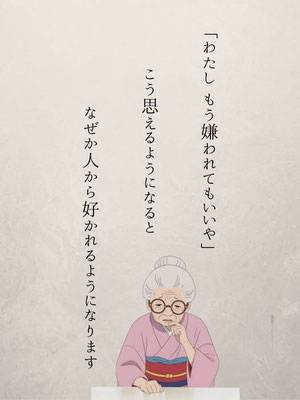 「わたし もう嫌われてもいいや」
こう思えるようになると
なぜか人から好かれるようになります